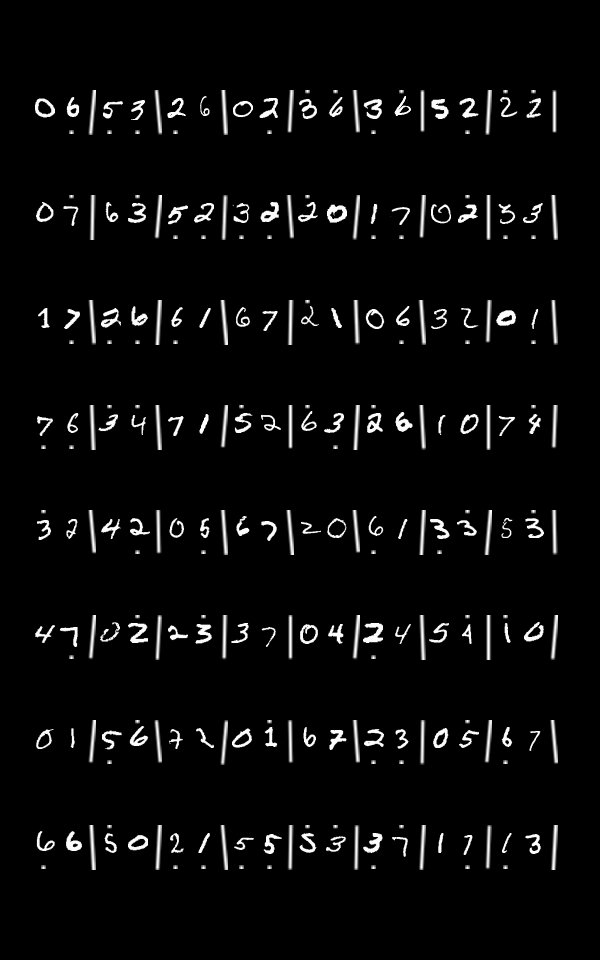 0 6 | 5 3 | 2 6 | 0 2 | 3 6 | 3 6 | 5 2 | 2 2 |
0 7 | 6 3 | 5 2 | 3 2 | 2 0 | 1 7 | 0 2 | 3 3 |
1 7 | 2 6 | 6 1 | 6 7 | 2 1 | 0 6 | 3 2 | 0 1 |
7 6 | 3 4 | 7 1 | 5 2 | 6 3 | 2 6 | 1 0 | 7 4 |
3 2 | 4 2 | 0 5 | 6 7 | 2 0 | 6 1 | 3 3 | 5 3 |
4 7 | 0 2 | 2 3 | 3 7 | 0 4 | 2 4 | 5 4 | 1 0 |
0 1 | 5 6 | 7 2 | 0 1 | 6 7 | 2 3 | 0 5 | 6 7 |
6 6 | 5 0 | 2 1 | 5 5 | 5 3 | 3 7 | 1 7 | 1 3 |